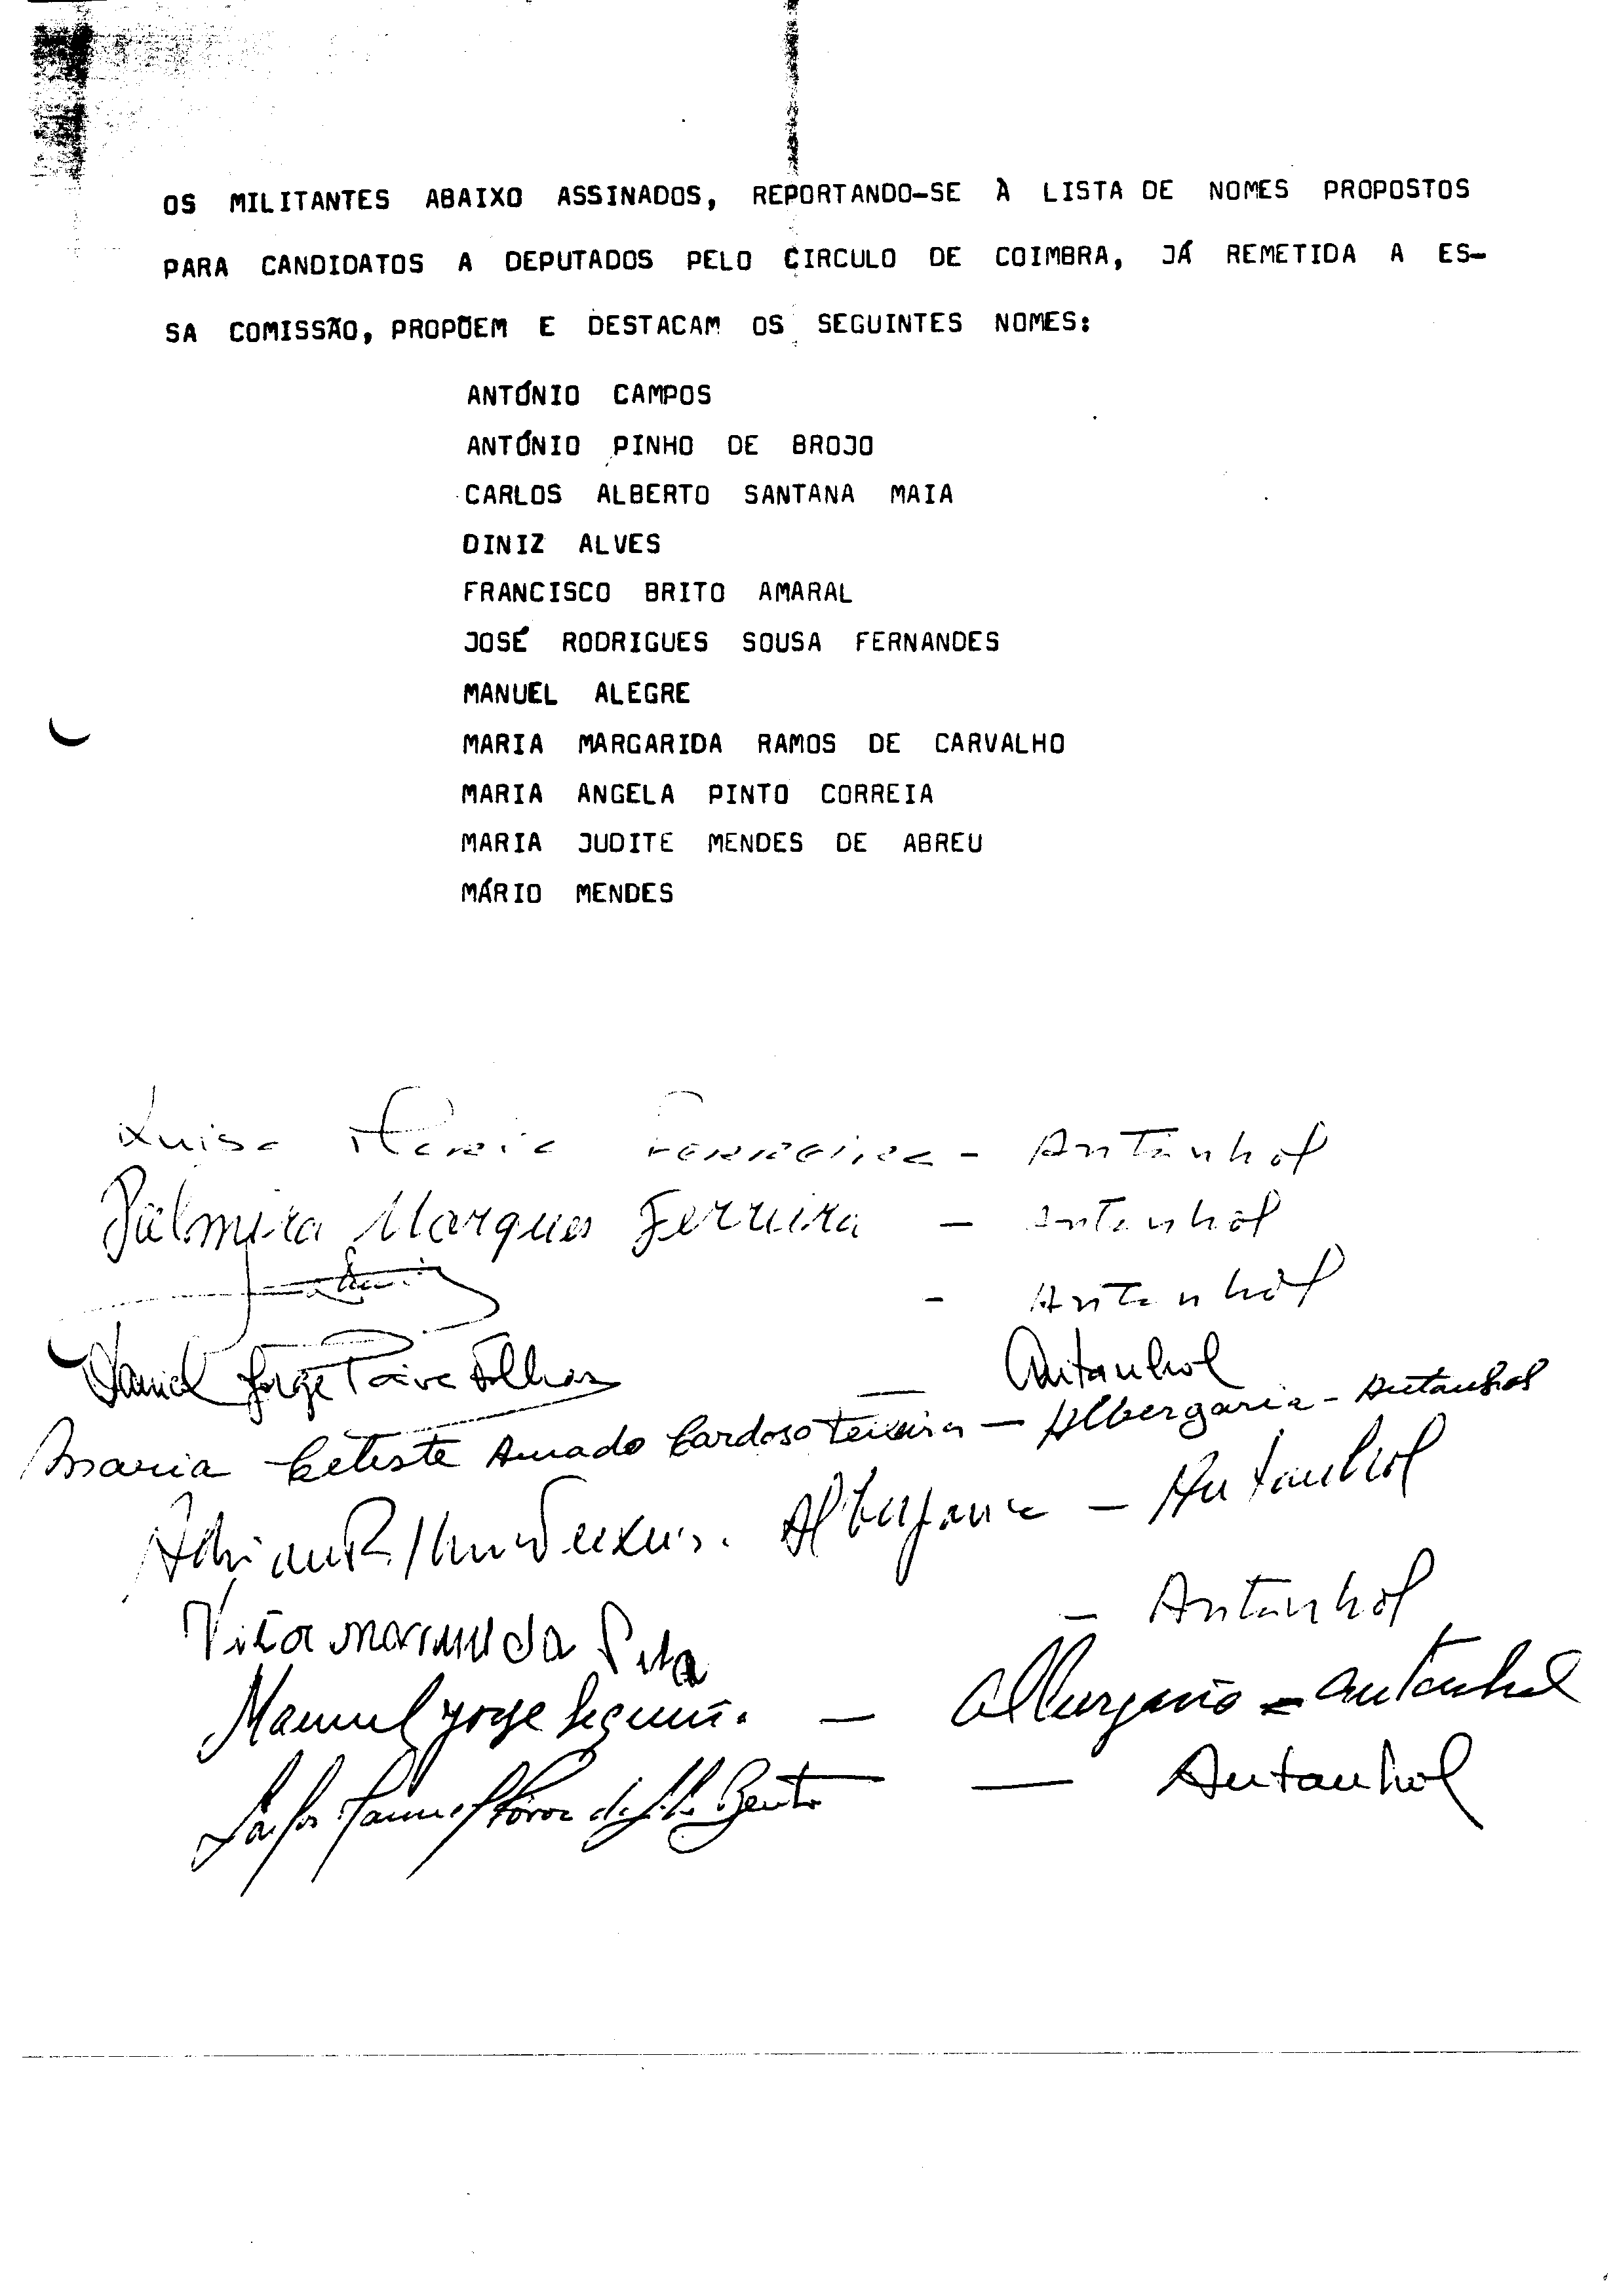 OS MILITANTES ABAIXO ASSINADOS, REPORTANDO-SE À LISTA DE NOMES PROPOSTOS
PARA CANDIDATOS A DEPUTADOS PELO CIRCULO DE COIMBRA, JÁ REMETIDA A ES-
SA COMISSÃO, PROPÕEM E DESTACAM OS SEGUINTES NOMES:
ANTÓNIO CAMPOS
ANTÓNIO PINHO DE BROJO
CARLOS ALBERTO SANTANA MAIA
DINIZ ALVES
FRANCISCO BRITO AMARAL
JOSÉ RODRIGUES SOUSA FERNANDES
MANUEL ALEGRE
MARIA MARGARIDA RAMOS DE CARVALHO
MARIA ANGELA PINTO CORREIA
MARIA JUDITE MENDES DE ABREU
MÁRIO MENDES
Luisa Maria Ferreira - Antanhol
Palmira Marques Ferreira - Antanhol
- Antanhol
Daniel Jorge Paiva - Antanhol
Maria Celeste Amado Cardoso Teixeira - Albergaria - Antanhol
Albergaria - Antanhol
- Antanhol
Manuel Jorge - Albergaria - Antanhol
Bento - Antanhol